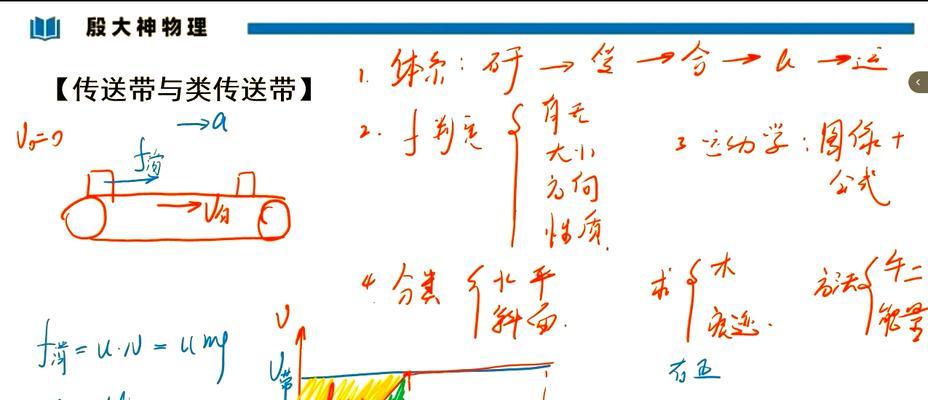 殷大神物理
【传送带与类传送带】
1. 体系: 研 → 受 → 合 → a → 运
V₀=0
→a
f滑
→V带
2. f判定
有无
大小
方向
性质
3 运动学: 图像+
公式
4. 分类
水平
斜面
求
痕迹
方法
牛二
能量
f滑 = u·N = umg
V
V带